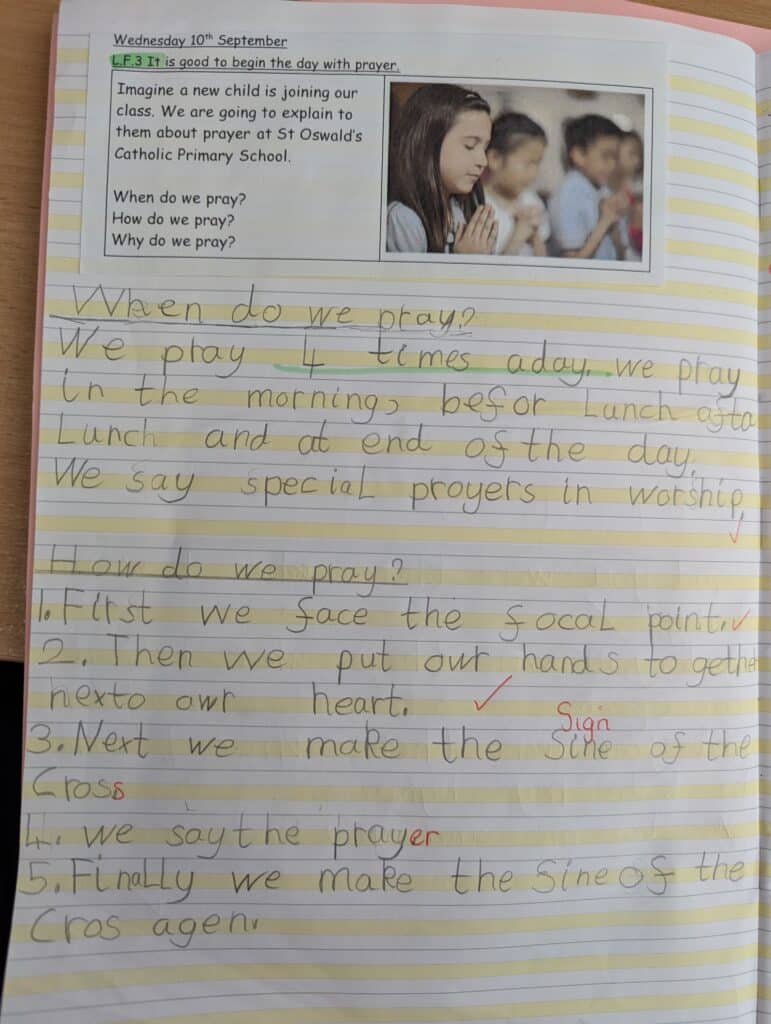 Wednesday 10th September
L.F.3 It is good to begin the day with prayer.
Imagine a new child is joining our
class. We are going to explain to
them about prayer at St Oswald's
Catholic Primary School.
When do we pray?
How do we pray?
Why do we pray?
When do we pray?
We pray 4 times aday. we pray
in the morning, befor Lunch afta
Lunch and at end of the day.
We say special proyers in worship,
How do we pray?
1. First we face the focal point.
2. Then we put owr hands to gether
nexto owr heart.
Sign
3. Next we make the Sine of the
Cross
4. we say the prayer
5. Finally we make the Sine of the
Cros agen.